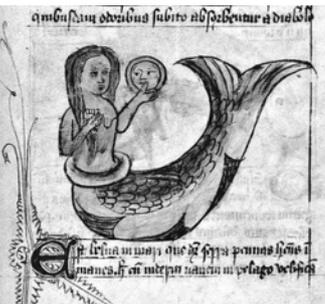 quibusdam otoribus subito absorbentur a diabolo
Est belua in mari que dr̄ serra pennas hn̄s i
manes. h̄ cū uiderit nauem in pelago velificā